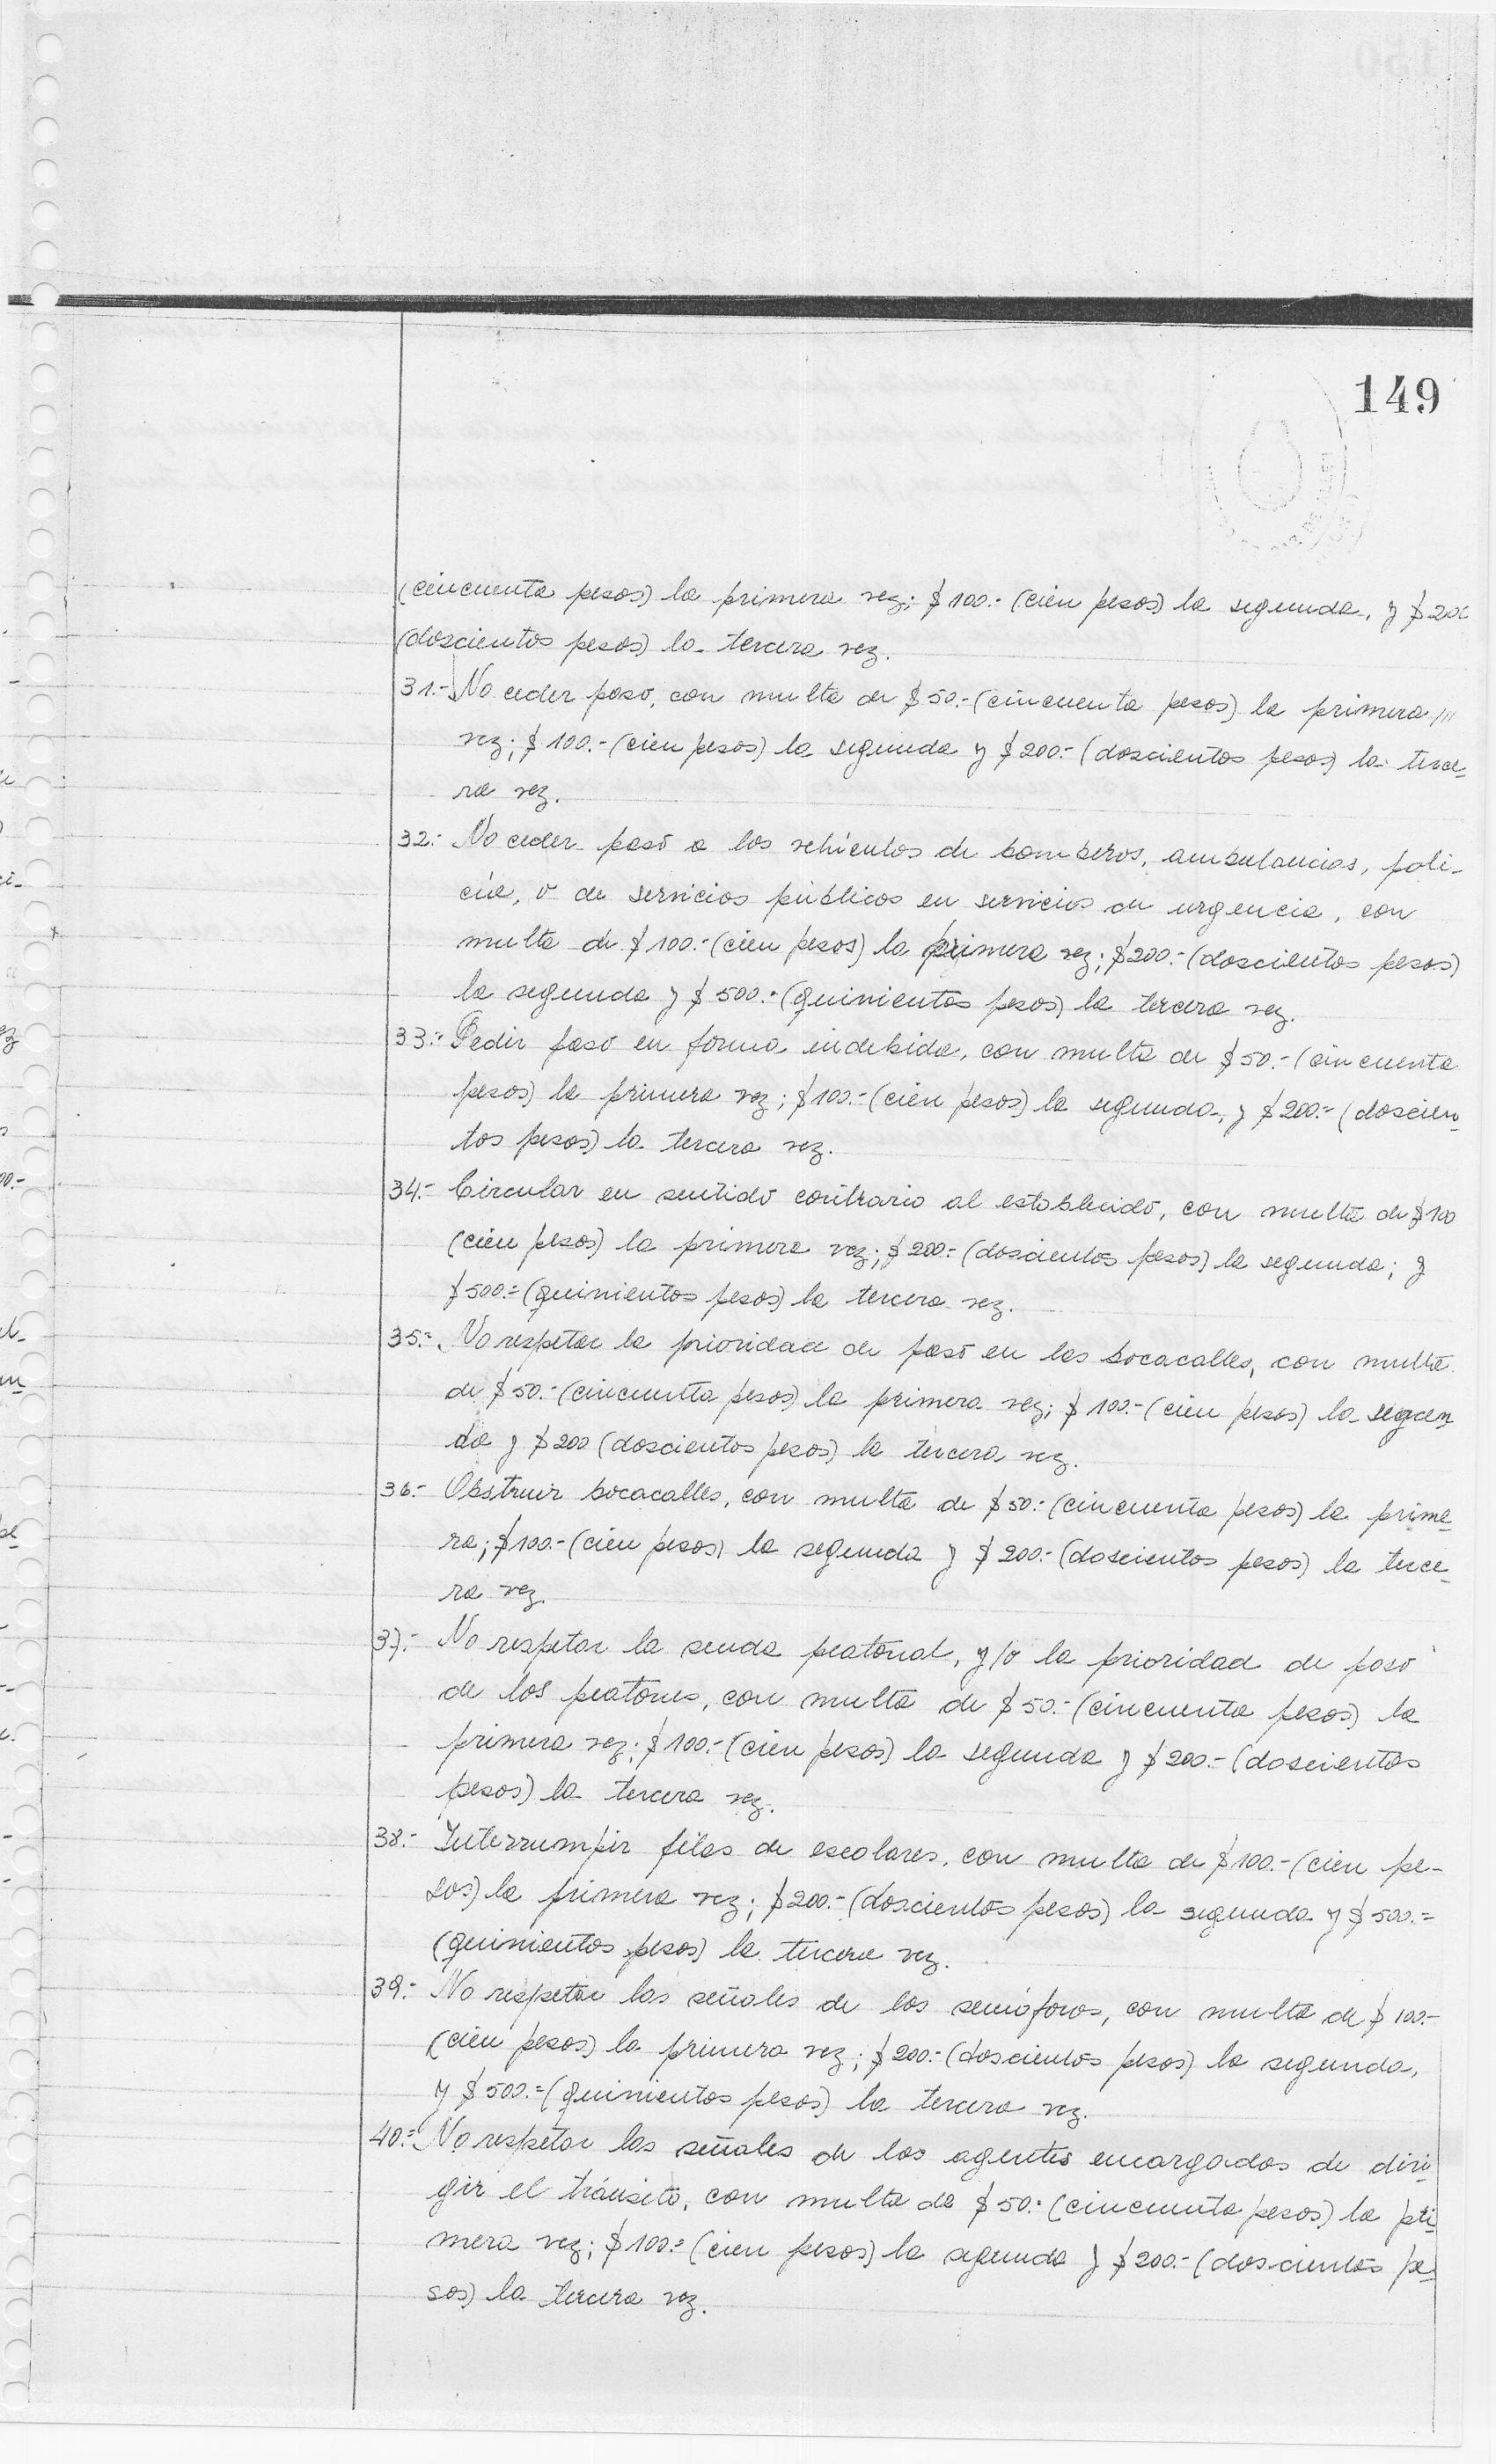 149
(cincuenta pesos) la primera vez; $ 100.- (cien pesos) la segunda, y $ 200
(doscientos pesos) la tercera vez.
31.- No ceder paso, con multa de $ 50.- (cincuenta pesos) la primera ///
vez; $ 100.- (cien pesos) la segunda y $ 200.- (doscientos pesos) la terce-
ra vez.
32.- No ceder paso a los vehículos de bomberos, ambulancias, poli-
cía, o de servicios públicos en servicios de urgencia, con
multa de $ 100.- (cien pesos) la primera vez; $ 200.- (doscientos pesos)
la segunda y $ 500.- (quinientos pesos) la tercera vez.
33.- Pedir paso en forma indebida, con multa de $ 50.- (cincuenta
pesos) la primera vez; $ 100.- (cien pesos) la segunda, y $ 200.- (doscien-
tos pesos) la tercera vez.
34.- Circular en sentido contrario al establecido, con multa de $ 100
(cien pesos) la primera vez; $ 200.- (doscientos pesos) la segunda; y
$ 500.- (quinientos pesos) la tercera vez.
35.- No respetar la prioridad de paso en las bocacalles, con multa
de $ 50.- (cincuenta pesos) la primera vez; $ 100.- (cien pesos) la segun
da y $ 200 (doscientos pesos) la tercera vez.
36.- Obstruir bocacalles, con multa de $ 50.- (cincuenta pesos) la prime-
ra; $ 100.- (cien pesos) la segunda y $ 200.- (doscientos pesos) la terce-
ra vez.
37.- No respetar la senda peatonal, y/o la prioridad de paso
de los peatones, con multa de $ 50.- (cincuenta pesos) la
primera vez; $ 100.- (cien pesos) la segunda y $ 200.- (doscientos
pesos) la tercera vez.
38.- Interrumpir filas de escolares, con multa de $ 100.- (cien pe-
sos) la primera vez; $ 200.- (doscientos pesos) la segunda y $ 500.-
(quinientos pesos) la tercera vez.
39.- No respetar las señales de los semáforos, con multa de $ 100.-
(cien pesos) la primera vez; $ 200.- (doscientos pesos) la segunda,
y $ 500.- (quinientos pesos) la tercera vez.
40.- No respetar las señales de los agentes encargados de diri-
gir el tránsito, con multa de $ 50.- (cincuenta pesos) la pri-
mera vez; $ 100.- (cien pesos) la segunda y $ 200.- (doscientos pe-
sos) la tercera vez.